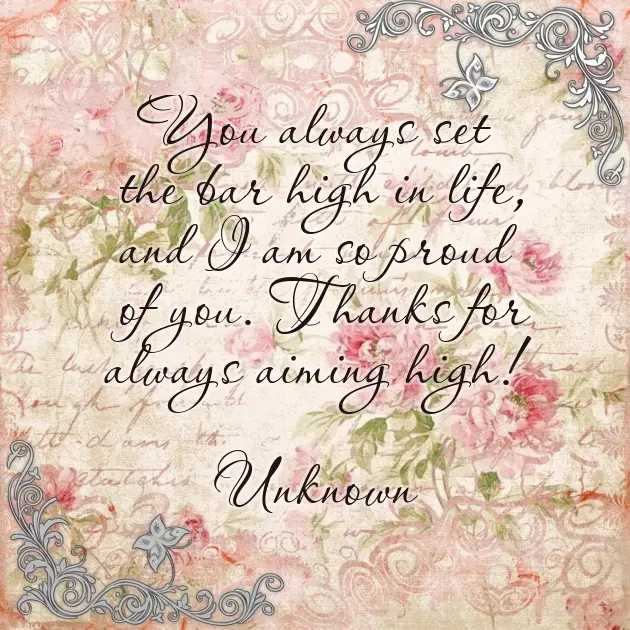 You always set
the bar high in life,
and I am so proud
of you. Thanks for
always aiming high!
Unknown